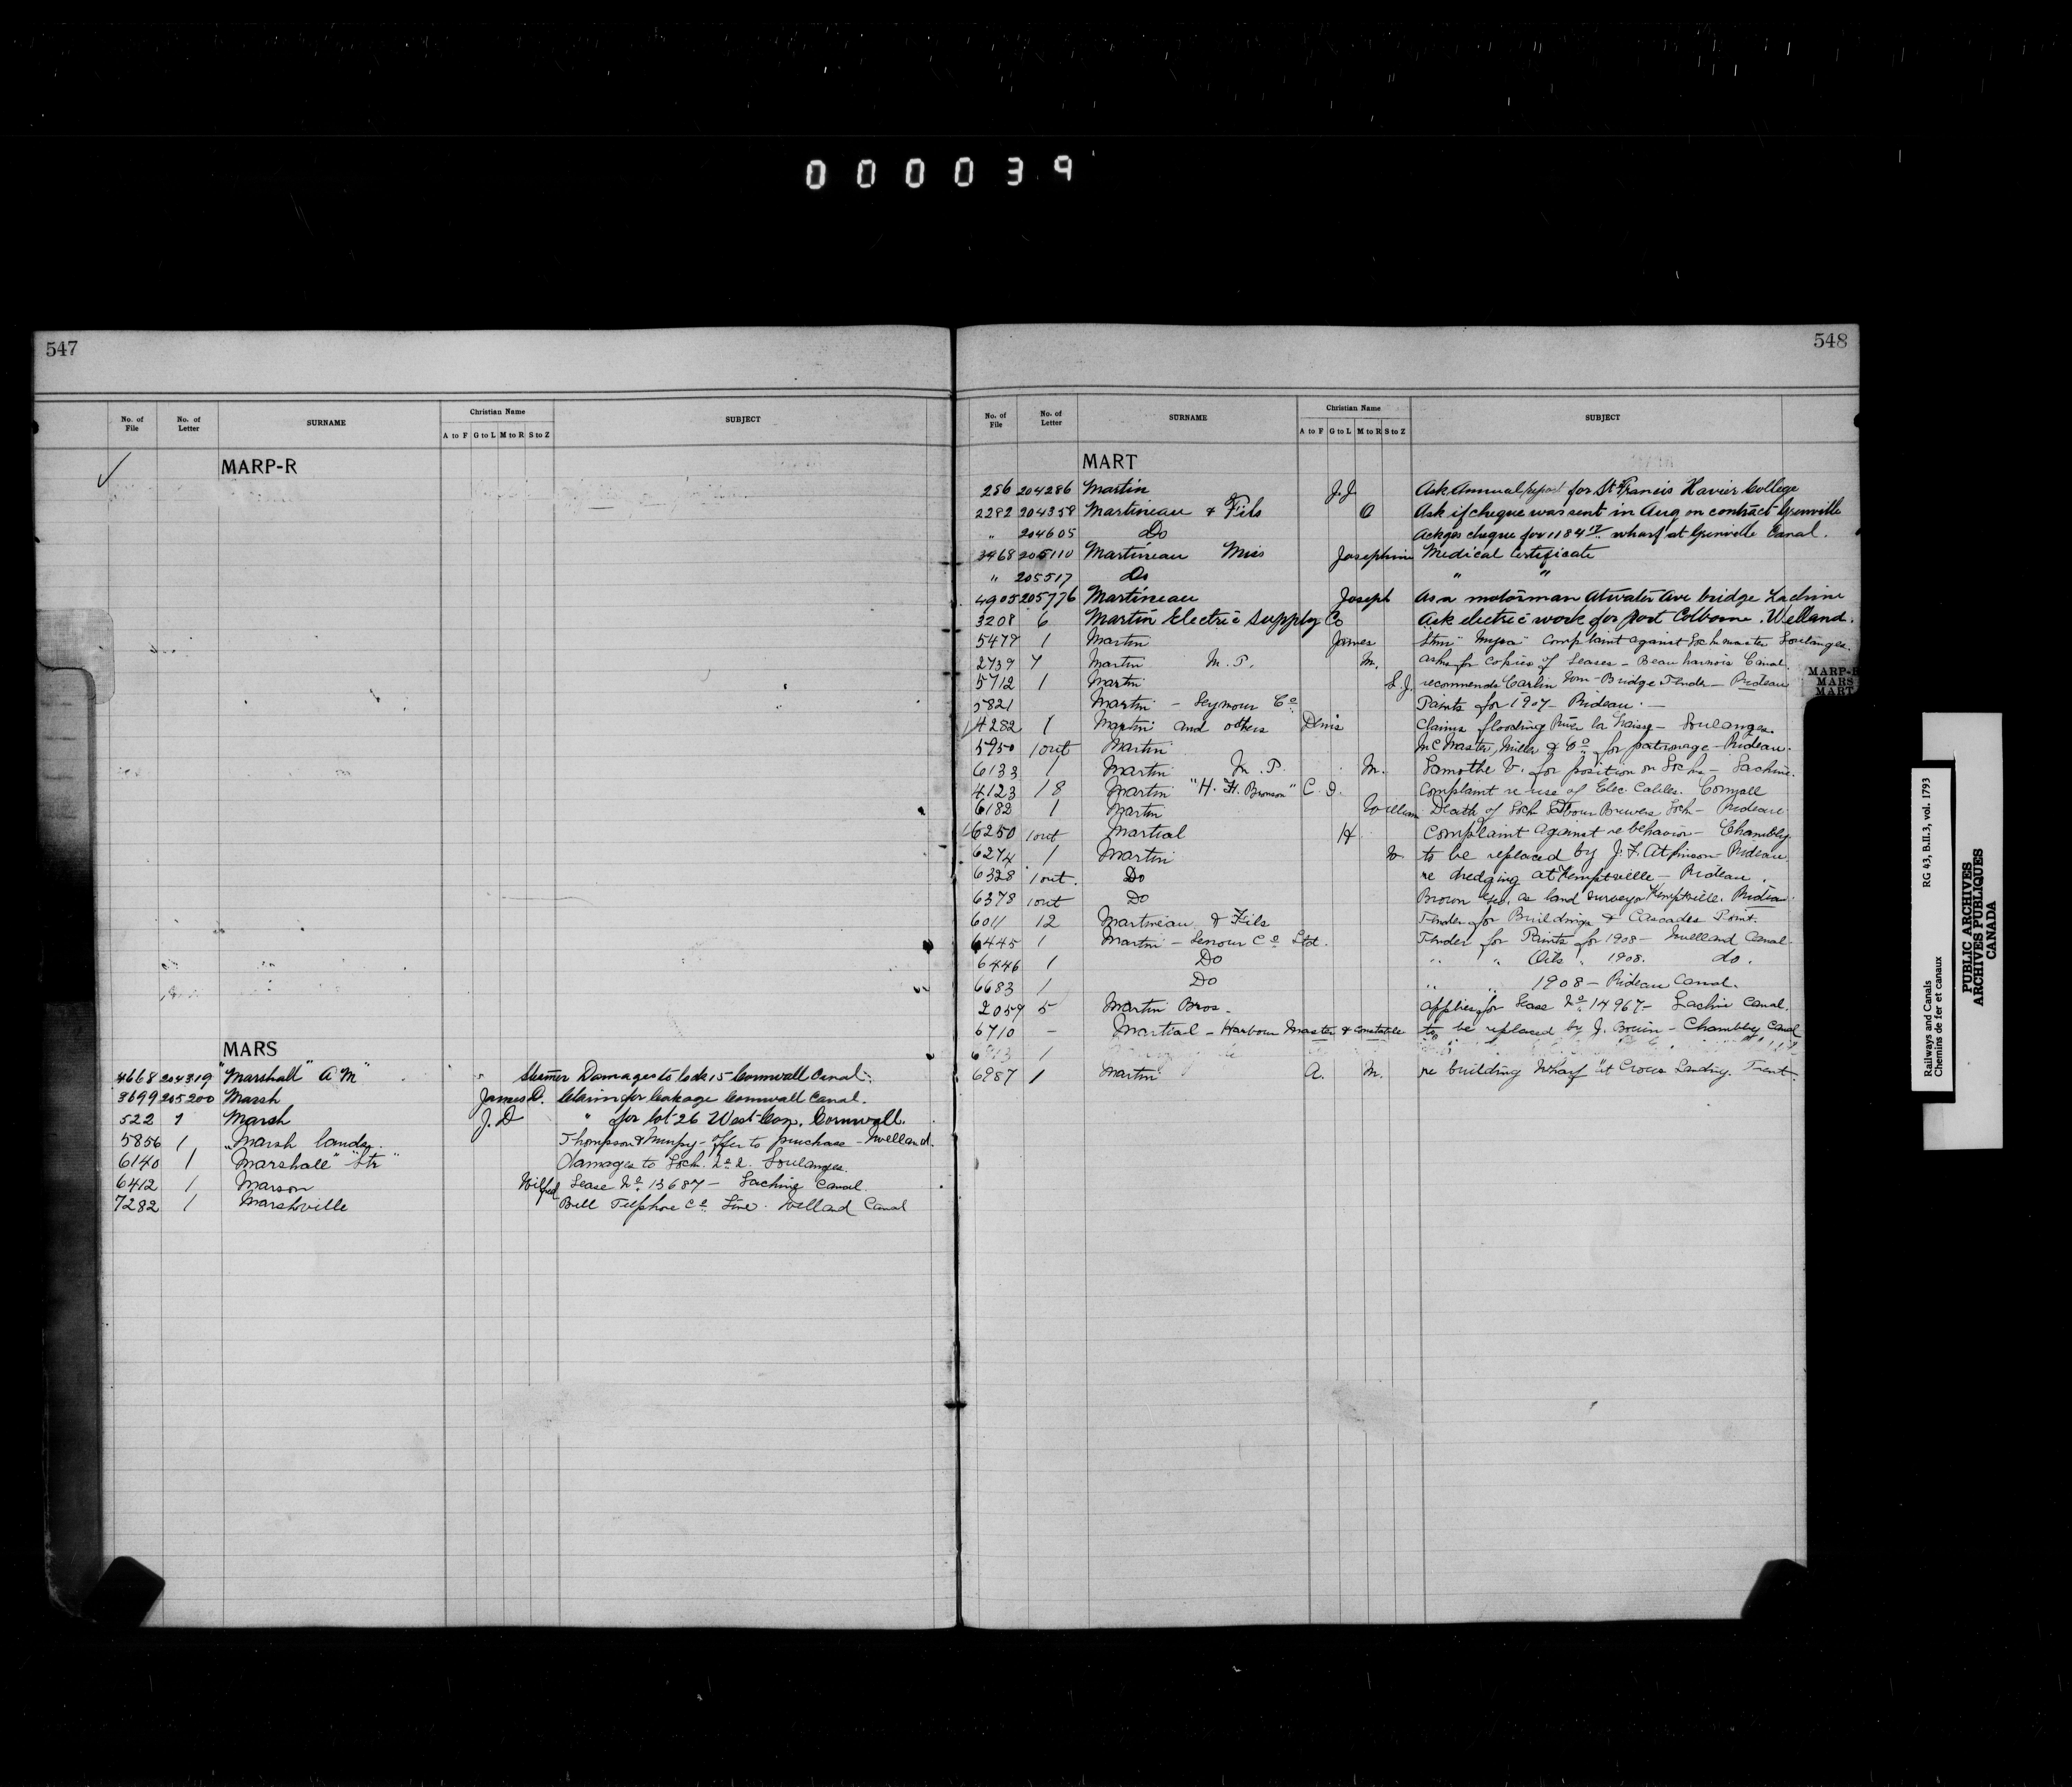 000039
547
No. of File No. of Letter SURNAME Christian Name SUBJECT
A to F G to L M to R S to Z
MARP-R
MARS
4668 204319 "Marshall" "A M" Steamer Damages to lock 15 Cornwall Canal.
3699 205200 Marsh James D. Claim for leakage Cornwall Canal.
522 7 Marsh J. D " for lot 26 West Con. Cornwall.
5856 1 Marsh lands. Thompson & Murpy - offer to purchase - Welland.
6140 1 Marshall" "Str" damages to Lock No 2. Soulanges.
6412 1 Marson Wilfred Lease No 13687 - Lachine Canal.
7282 1 Marshville Bell Telphone Co Line. Welland Canal
548
No. of File No. of Letter SURNAME Christian Name SUBJECT
A to F G to L M to R S to Z
MART
256 204286 Martin J. J. Ask Annual report for St Francis Xavier College
2282 204358 Martineau & Fils O Ask if cheque was sent in Aug on contract Grenville
" 204605 Do Ackges cheque for 1184 wharf at Grenville Canal.
3468 205110 Martineau Miss Josephine Medical Certificate
" 205517 Do " "
4905 205776 Martineau Joseph As a motorman Atwater Ave bridge Lachine
3208 6 Martin Electric Supply Co Ask electric work for Port Colborne. Welland.
5477 1 Martin James Stmr "Myra" Complaint against Lockmaster Soulanges.
2739 7 Martin M.P. M. asks for copies of Leases - Beauharnois Canal.
5712 1 Martin recommends Carlin Tom - Bridge Tender - Rideau
5821 Martin - Seymour Co Paints for 1907 - Rideau. -
4282 1 Martin and others Denis Claims flooding River la Graisse - Soulanges.
5950 1 out Martin McMaster, Miller & Co for patronage - Rideau.
6133 1 Martin M.P. M. Lamothe V. for position on Locks - Lachine.
4123 18 Martin "H. H. Bronson" C. D. Complaint re use of Elec. Cables. Cornwall
6182 1 Martin William Death of Lock Labour Brewers Lock - Rideau
6250 1 out Martial H Complaint against re behavior - Chambly
6274 1 Martin W. to be replaced by J. F. Atkinson - Rideau
6328 1 out. Do re dredging at Kemptville - Rideau.
6378 1 out Do Brown Geo. as land surveyor Kemptville. Rideau.
6011 12 Martineau & Fils Tender for Buildings & Cascades Point.
6445 1 Martin - Senour Co Ltd. Tender for Paints for 1908 - Welland Canal.
6446 1 Do " " Oils " 1908. do.
6683 1 Do " " 1908 - Rideau Canal.
2059 5 Martin Bros. applies for Lease No 14967 - Lachine Canal.
6710 - Martial - Harbour Master & Constable to be replaced by J. Bouin - Chambly Canal
1
6987 1 Martin A. M. re building Wharf at Crowe Landing. Trent.
MARP-R
MARS
MART
Railways and Canals RG 43, B.II.3, vol. 1793
Chemins de fer et canaux
PUBLIC ARCHIVES
ARCHIVES PUBLIQUES
CANADA